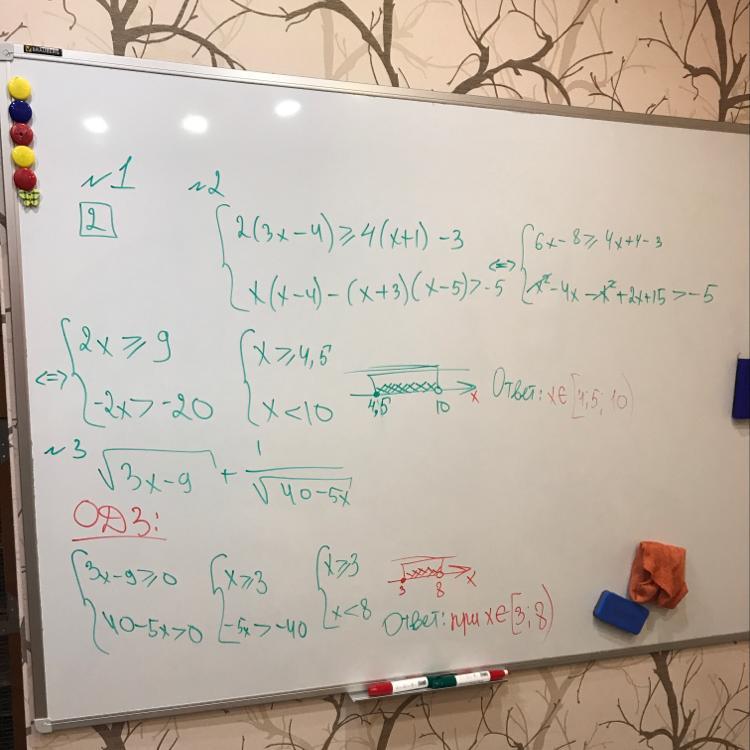 BRAUBERG
№1
2
№2
{ 2(3x-4) ≥ 4(x+1) -3
{ x(x-4) - (x+3)(x-5) > -5
<=> { 6x-8 ≥ 4x+4-3
{ x²-4x-x²+2x+15 > -5
<=> { 2x ≥ 9
{ -2x > -20
{ x ≥ 4,5
{ x < 10
4,5 10 x
Ответ: x∈[4,5; 10)
№3 √(3x-9) + 1/√(40-5x)
ОДЗ:
{ 3x-9 ≥ 0
{ 40-5x > 0
{ x ≥ 3
{ -5x > -40
{ x ≥ 3
{ x < 8
3 8 x
Ответ: при x∈[3; 8)